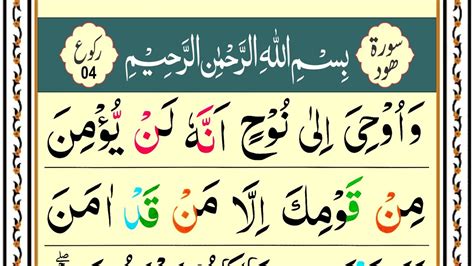 سورة هود
بِسْمِ اللهِ الرَّحْمٰنِ الرَّحِيْمِ
رکوع 04
وَاُوْحِیَ اِلٰی نُوْحٍ اَنَّهٗ لَنْ یُّؤْمِنَ
مِنْ قَوْمِكَ اِلَّا مَنْ قَدْ اٰمَنَ